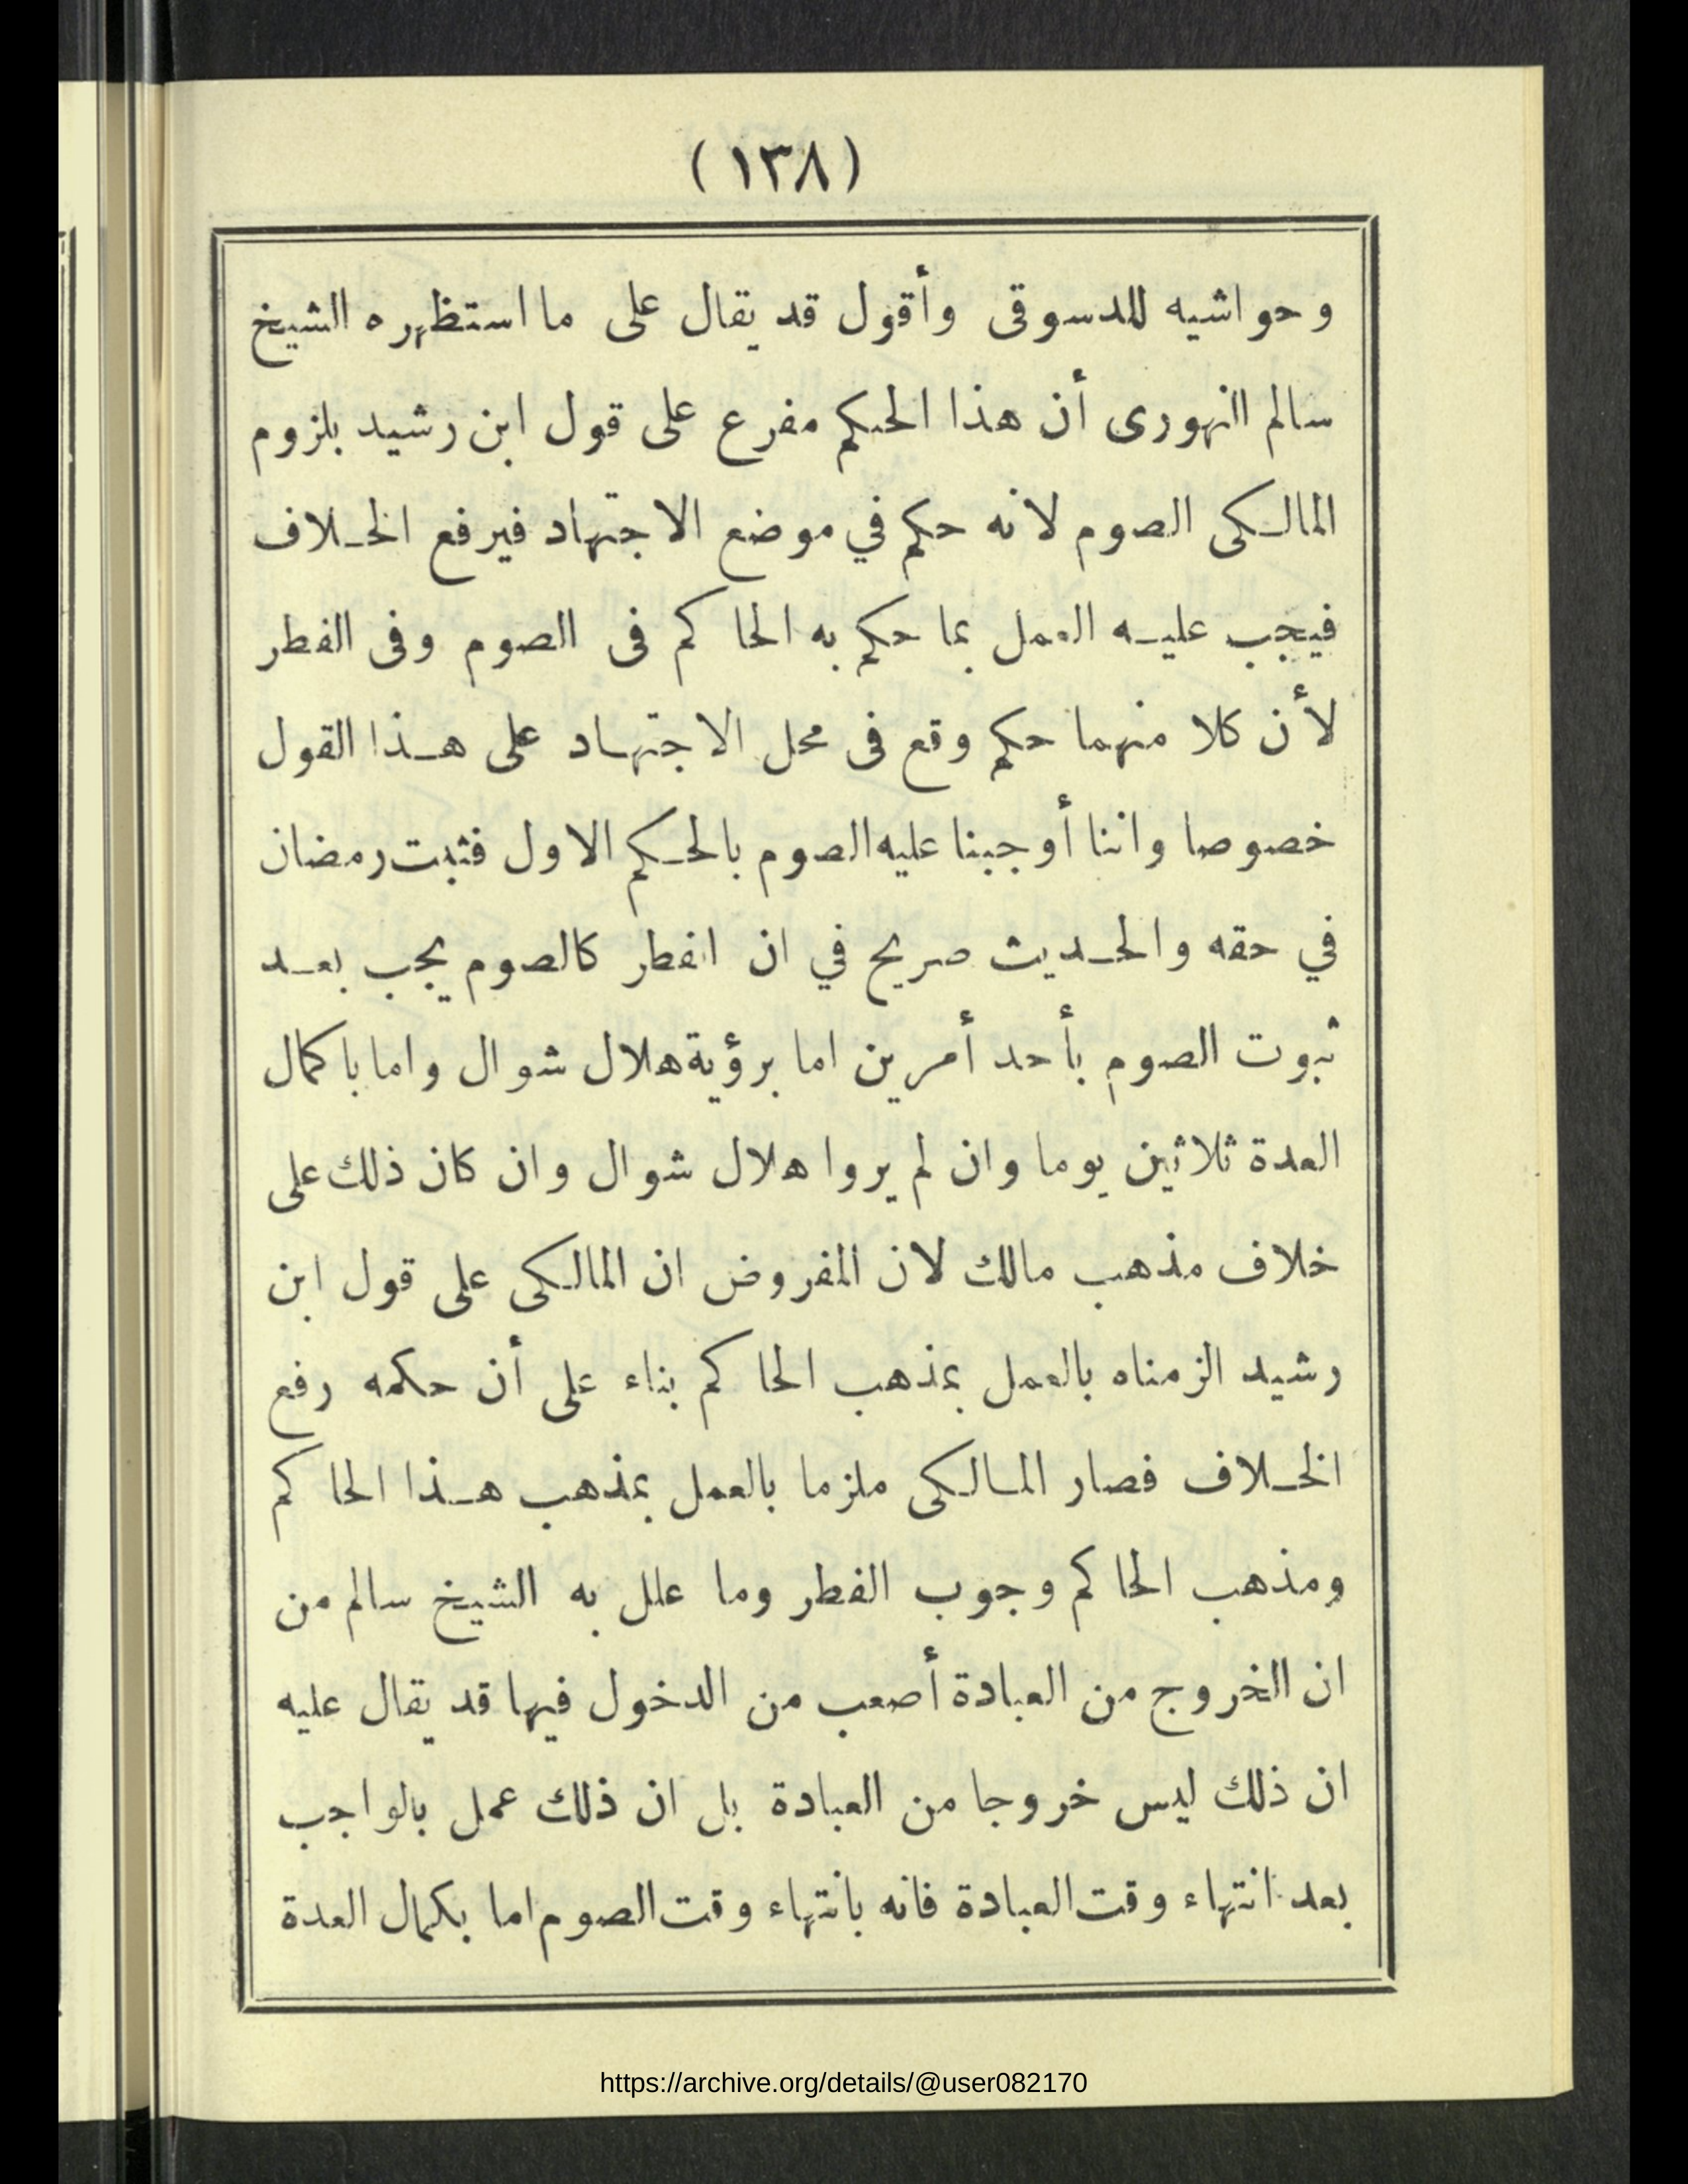 (١٣٨)
وحواشيه للدسوقى وأقول قد يقال على ما استظهره الشيخ
سالم النهورى أن هذا الحكم مفرع على قول ابن رشيد بلزوم
المالكى الصوم لانه حكم في موضع الاجتهاد فيرفع الخلاف
فيجب عليه العمل بما حكم به الحاكم فى الصوم وفى الفطر
لأن كلا منهما حكم وقع فى محل الاجتهاد على هذا القول
خصوصا واننا أوجبنا عليه الصوم بالحكم الاول فثبت رمضان
في حقه والحديث صريح في ان الفطر كالصوم يجب بعد
ثبوت الصوم بأحد أمرين اما برؤية هلال شوال واما باكمال
العدة ثلاثين يوما وان لم يروا هلال شوال وان كان ذلك على
خلاف مذهب مالك لان المفروض ان المالكى على قول ابن
رشيد الزمناه بالعمل بمذهب الحاكم بناء على أن حكمه رفع
الخلاف فصار المالكى ملزما بالعمل بمذهب هذا الحاكم
ومذهب الحاكم وجوب الفطر وما علل به الشيخ سالم من
ان الخروج من العبادة أصعب من الدخول فيها قد يقال عليه
ان ذلك ليس خروجا من العبادة بل ان ذلك عمل بالواجب
بعد انتهاء وقت العبادة فانه بانتهاء وقت الصوم اما بكمال العدة
https://archive.org/details/@user082170